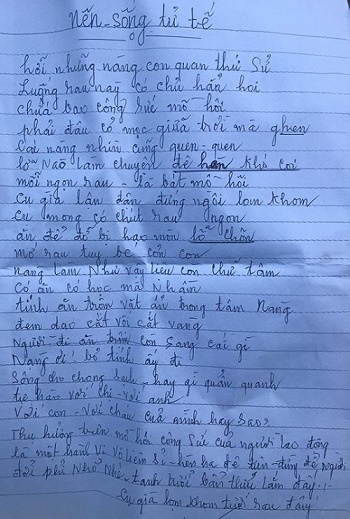 Nên sống tử tế
hỡi những nàng con quan thứ sử
Luống rau này có chủ hẳn hoi
chứa bao công sức mồ hôi
phải đâu cỏ mọc giữa trời mà ghen
nàng nhìn cũng quen-quen
lỡ nào làm chuyện đê hèn khó coi
mỗi ngọn rau - là bát mồ hôi
Cụ già lẩn đẩn đứng ngồi lom khom
Cụ mong có chút rau ngon
ăn để đỡ bị hao mòn
mớ rau tuy bé cỏn con
nàng làm như vậy liệu còn chữ tâm
Có ăn có học mà nhầm
tính ăn trộm vặt ẩn trong tâm nàng
đem dao cắt vội cắt vàng
Người đi ăn trộm con sang cái gì
Nàng ơi bỏ tính ấy đi
Sống cho hay gì quẩn quanh
tự hào với chị-với anh
Với con - với cháu của mình hay sao?
Thụ hưởng trên mồ hôi công sức của người lao động
là một hành vi vô liêm sỉ - hèn hạ đê tiện đừng để người
đời phỉ nhổ như tanh tưởi bẩn thỉu lắm đấy!
Cụ già lom khom tưới rau đây